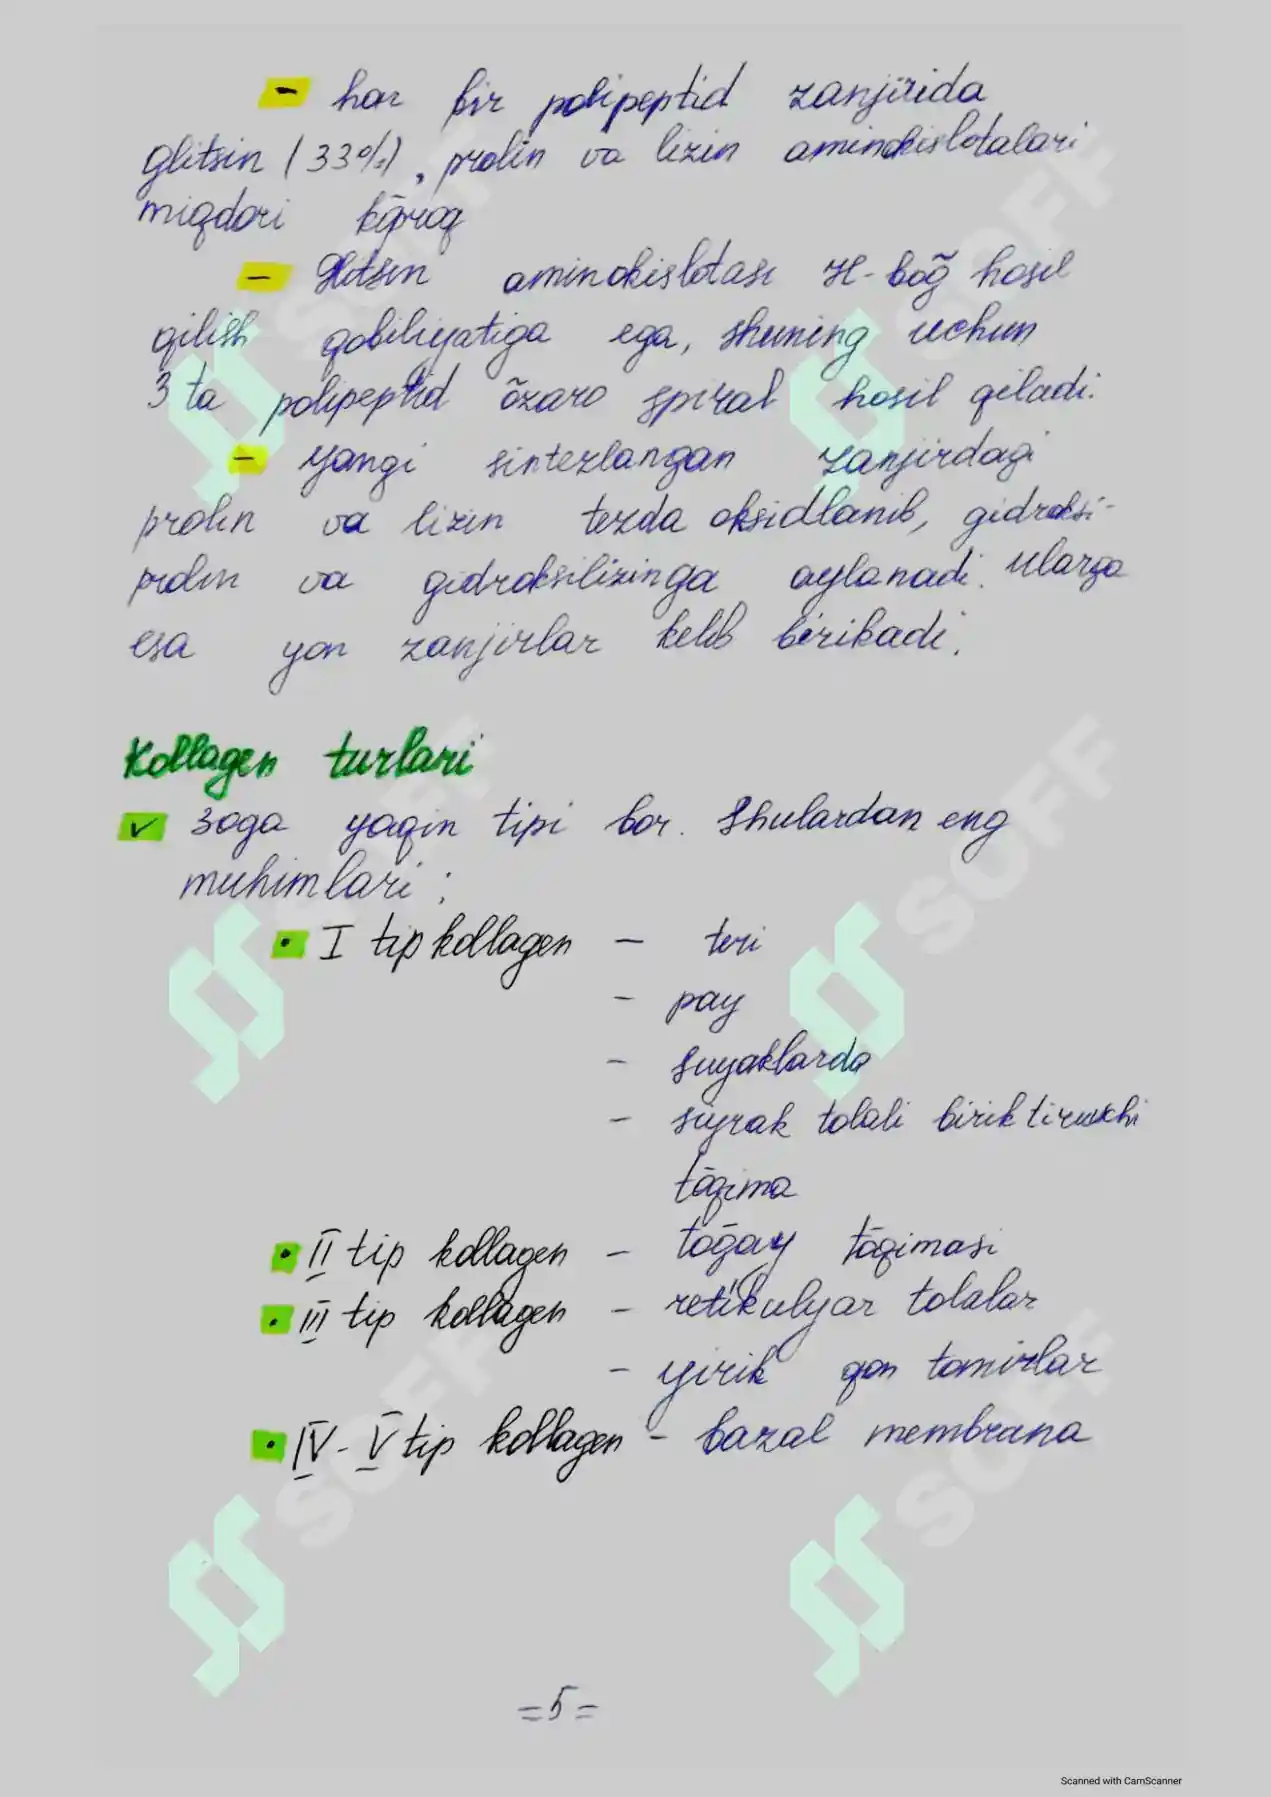 - har bir polipeptid zanjirida
glitsin (33%), prolin va lizin aminokislotalari
miqdori kōproq
- glitsin aminokislotasi H-boḡ hosil
qilish qobiliyatiga ega, shuning uchun
3 ta polipeptid ōzaro spiral hosil qiladi.
- yangi sintezlangan zanjirdagi
prolin va lizin tezda oksidlanib, gidroksi-
prolin va gidroksilizinga aylanadi. Ularga
esa yon zanjirlar kelib birikadi.
Kollagen turlari
✓ 30ga yaqin tipi bor. Shulardan eng
muhimlari:
• I tip kollagen - teri
- pay
- suyaklarda
- siyrak tolali biriktiruvchi
tōqima
• II tip kollagen - toḡay tōqimasi
• III tip kollagen - retikulyar tolalar
- yirik qon tomirlar
• IV-V tip kollagen - bazal membrana
=5=
SOFF
SOFF
SOFF
SOFF
SOFF
SOFF
Scanned with CamScanner